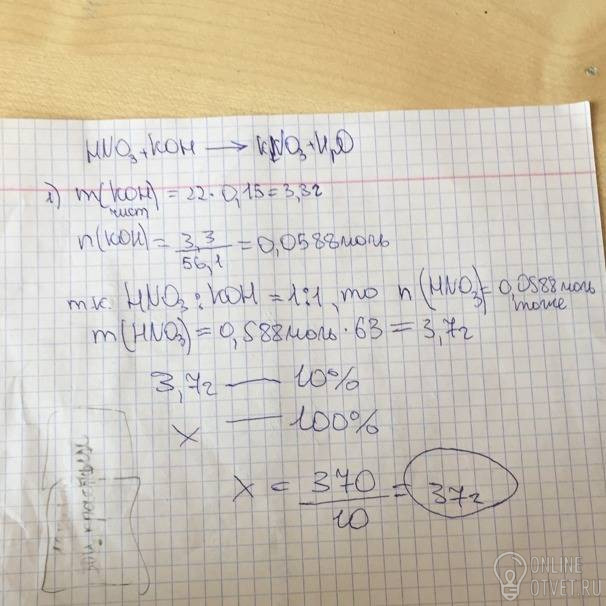 HNO₃ + KOH → KNO₃ + H₂O
1) m(KOH) = 22 · 0,15 = 3,3г
чист
n(KOH) = 3,3 / 56,1 = 0,0588 моль
т.к. HNO₃ : KOH = 1:1, то n(HNO₃) = 0,0588 моль
тоже
m(HNO₃) = 0,588 моль · 63 = 3,7г
3,7г — 10%
x — 100%
x = 370 / 10 = 37г
ONLINE
OTVET.RU